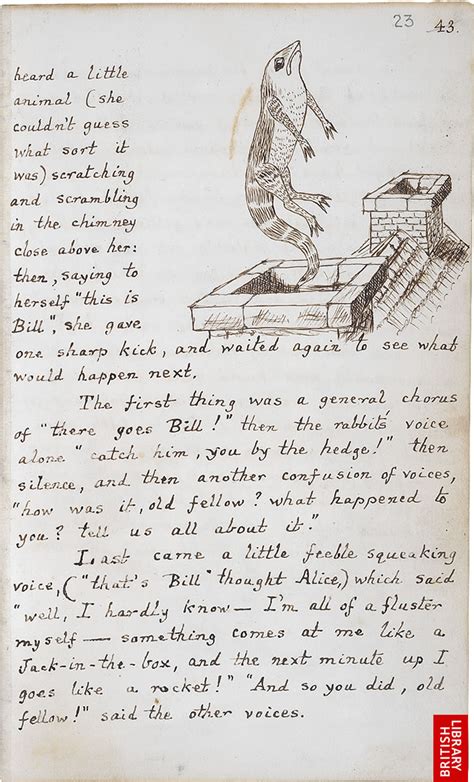 23 43.
heard a little
animal (she
couldn't guess
what sort it
was) scratching
and scrambling
in the chimney
close above her:
then, saying to
herself "this is
Bill", she gave
one sharp kick, and waited again to see what
would happen next.
The first thing was a general chorus
of "there goes Bill!" then the rabbit's voice
alone "catch him, you by the hedge!" then
silence, and then another confusion of voices,
"how was it, old fellow? what happened to
you? tell us all about it."
Last came a little feeble squeaking
voice, ("that's Bill" thought Alice,) which said
"well, I hardly know — I'm all of a fluster
myself — something comes at me like a
Jack-in-the-box, and the next minute up I
goes like a rocket!" "And so you did, old
fellow!" said the other voices.
BRITISH
LIBRARY